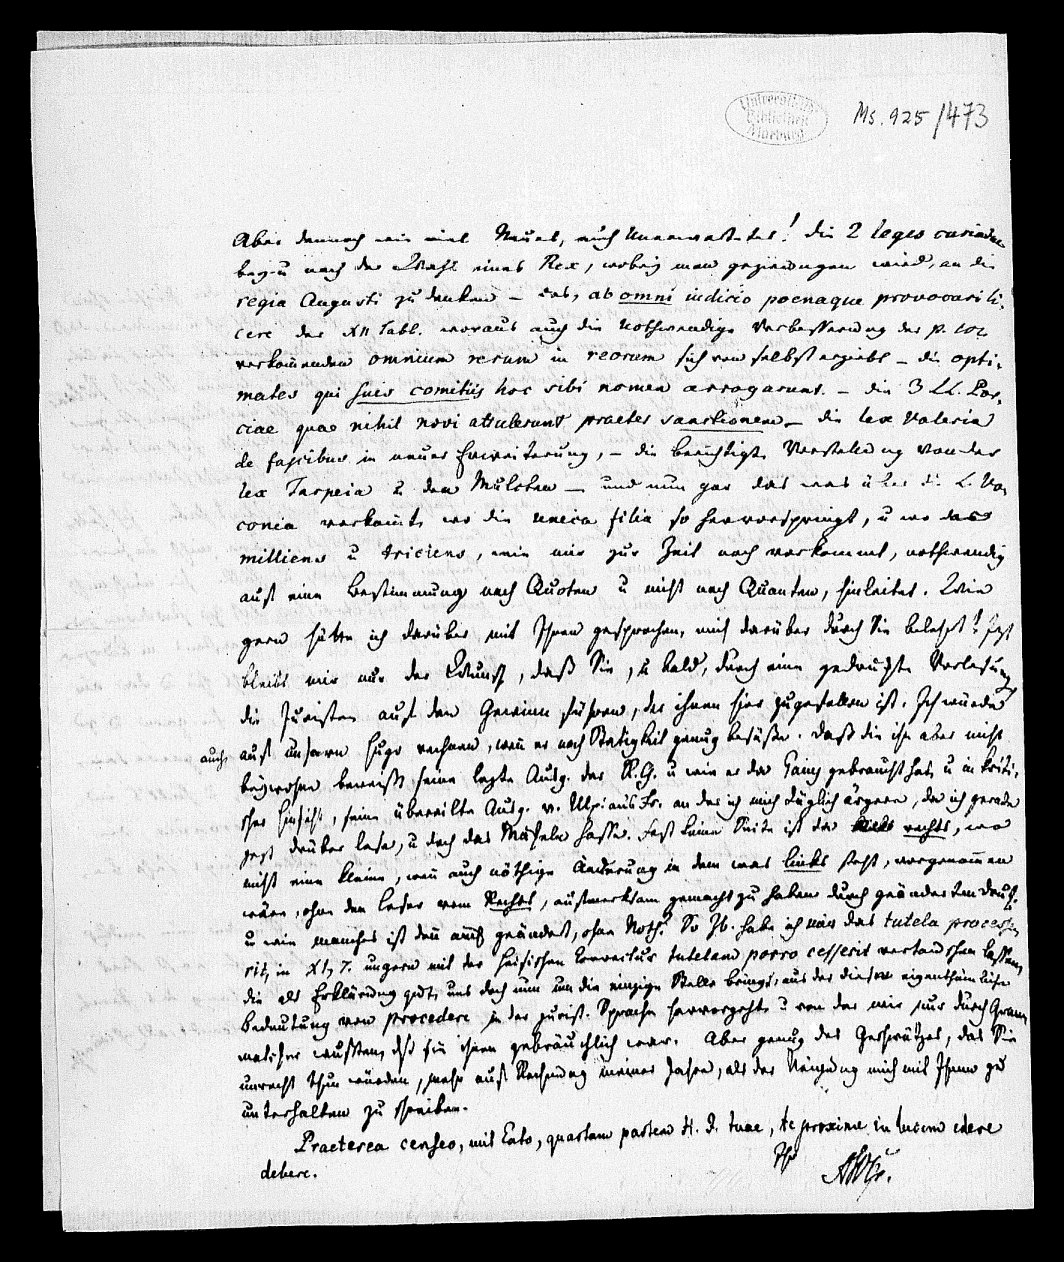 Universitäts
Bibliothek
Marburg
Ms. 925/473
Aber dennoch wie viel Neues, auch Unerwartetes! Die 2 leges curiatae
bey u nach der Wahl eines Rex, wobey man gezwungen wird, an die
regia Augusti zu denken – das, ab omni iudicio poenaque provocari li-
cere der XII Tabb. woraus auch die nothwendige Verbesserung der p.
vorkommenden omnium rerum in reorum sich von selbst ergiebt – die opti-
mates qui suis comitiis hoc sibi nomen arrogarunt. – die 3 LL. Por-
ciae quae nihil novi attulerunt praeter sanctionem – die lex Valeria
de fascibus in neuer Erweiterung, – die berichtigte Vorstellung von der
lex Tarpeia u den Mulcten – und nun gar das was über die L. Vo-
conia vorkomt, wo die unica filia so hervorspringt, u wo das
milliens u triciens, wie mir zur Zeit noch vorkommt, nothwendig
auf eine Bestimmung nach Quoten u nicht nach Quanten, hinleitet. Wie
gern hätte ich darüber mit Ihnen gesprochen, mich darüber durch Sie belehrt! Jetzt
bleibt mir nur der Wunsch, daß Sie, u bald, durch eine gedruckte Vorlesung
die Juristen auf den Gewinn führen, der ihnen hier zugefallen ist. Ich würde
auch auf unsern Hugo rechnen, wenn er noch Stetigkeit genug besäße. Daß die ihm aber nicht
beywohne beweißt seine lezte Ausg. der R.G. u wie er da Gaius gebraucht hat, u in kriti-
scher Hinsicht, seine übereilte Ausg. v. Ulpians Fr. an der ich mich täglich ärgere, da ich gerade
jezt drüber lese, u doch das Mäkeln hasse. Fast keine Seite ist da rechts, wo
nicht eine kleine, wenn auch nöthige Änderung in dem was links steht, vorgenommen
wäre, ohne den Leser vom Rechts, aufmerksam gemacht zu haben durch geänderten Druck.
u wie manches ist denn auch geändert, ohne Noth. So zb. habe ich nur das tutela processe-
rit, in XI, 7. ungern mit der tutelam porro cesserit vertauschen lassen,
die als Erklärung gut, uns doch nun um die einzige Stelle bringt, aus der diese eigenthümliche
Bedeutung von procedere in der jurist. Sprache hervorgeht u von der wir nur durch Gram-
matiker wußten, dß sie ihnen gebräuchlich war. Aber genug des Geschwätzes, das Sie
unrecht thun würden, mehr auf Rechnung meiner Jahre, als der Neigung mich mit Ihnen zu
unterhalten zu schreiben.
Praeterea censeo, mit Cato, quartam partem H. I. tuae, te proxime in lucem edere
debere.
Ihr